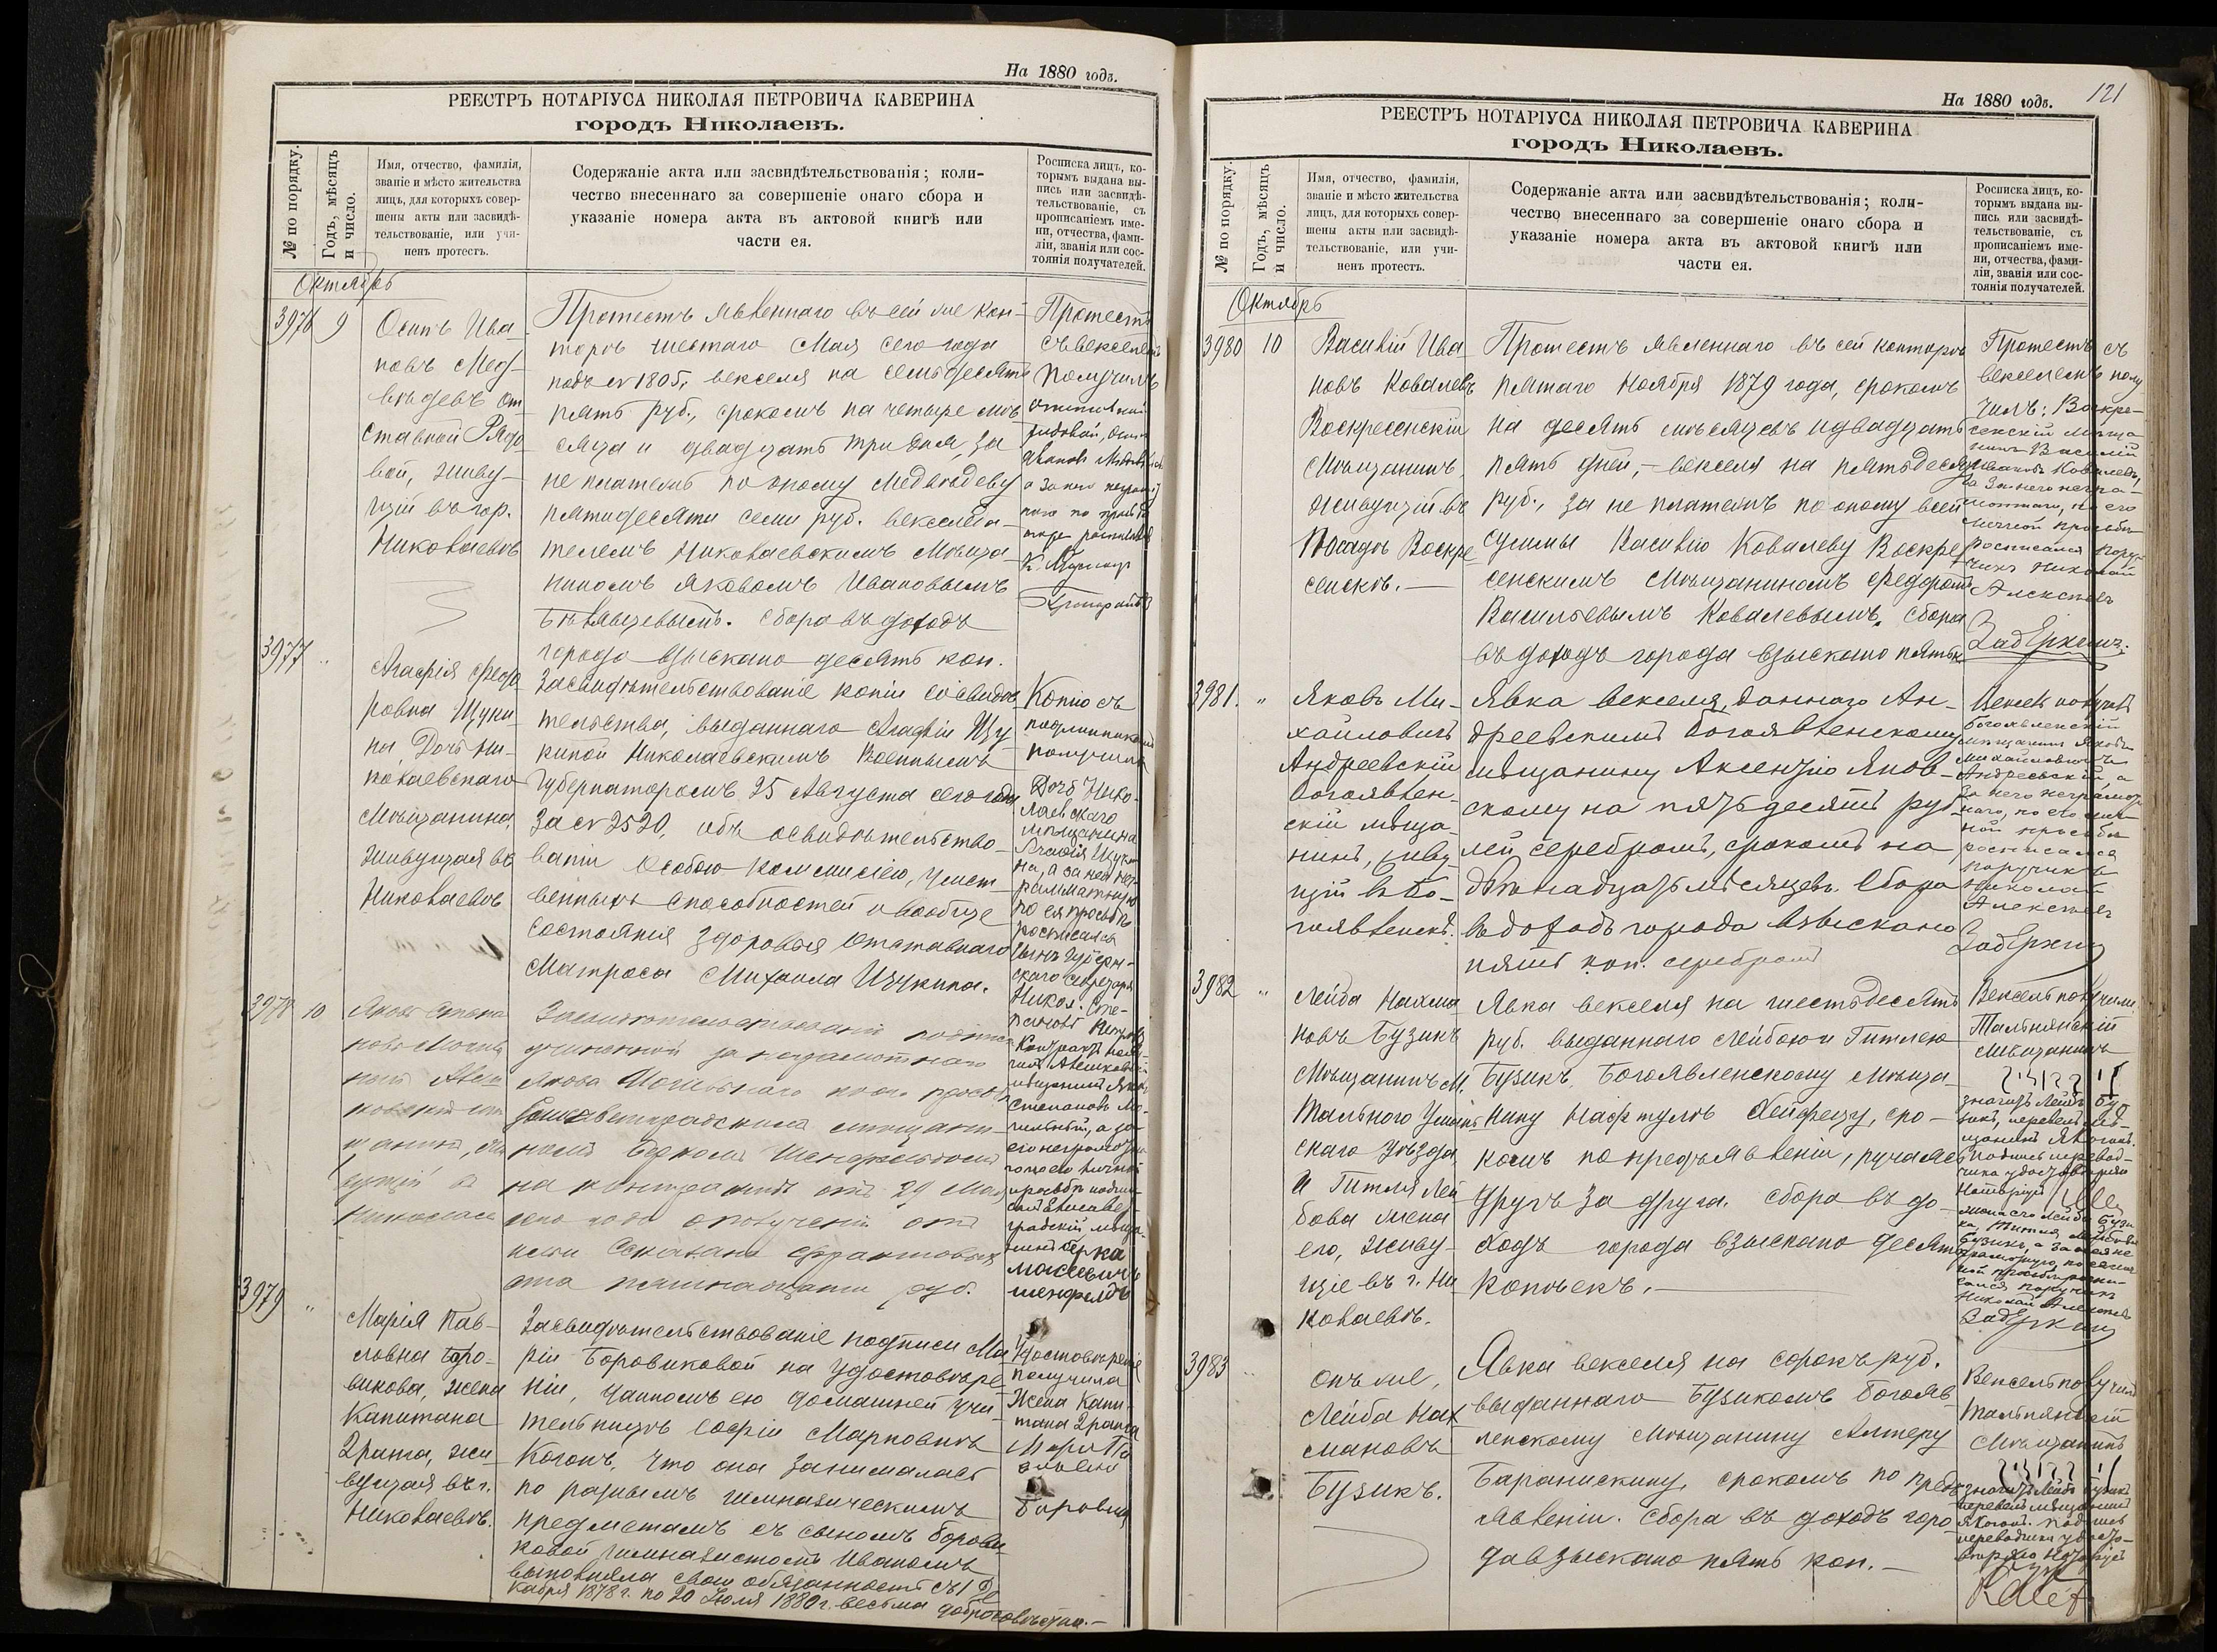 На 1880 годъ.
РЕЕСТРЪ НОТАРІУСА НИКОЛАЯ ПЕТРОВИЧА КАВЕРИНА
городъ Николаевъ.
№ по порядку.
Годъ, мѣсяцъ
и число.
Имя, отчество, фамилія,
званіе и мѣсто жительства
лицъ, для которыхъ совер-
шены акты или засвидѣ-
тельствованіе, или учи-
ненъ протестъ.
Содержаніе акта или засвидѣтельствованія; коли-
чество внесеннаго за совершеніе онаго сбора и
указаніе номера акта въ актовой книгѣ или
части ея.
Росписка лицъ, ко-
торымъ выдана вы-
пись или засвидѣ-
тельствованіе, съ
прописаніемъ име-
ни, отчества, фами-
ліи, званія или сос-
тоянія получателей.
Октябрь
3976 9
Осипъ Ива
новъ Мед-
вѣдевъ от
ставной Рядо
вой, живу-
щій въ гор.
Николаевѣ
Протестъ явленнаго въ сей же кон-
торѣ шестаго Мая сего года
подъ № 1805, векселя на семьдесятъ
пять руб., срокомъ на четыре мѣ
сяца и двадцать три дня, за
не платежъ по оному Медвѣдеву
пятидесяти семи руб. векселеда-
телемъ Николаевскимъ Мѣща
ниномъ Яковомъ Ивановымъ
Сбора въ доходъ
города взыскано десять коп.
Протестъ
съ векселемъ
получилъ
отставной
рядовой, Осипъ
Ивановъ
3977 "
Агафія Федо
ровна Щуки
на, Дочь Ни-
колаевскаго
Мѣщанина,
живущая въ
Николаевѣ
Засвидѣтельствованіе копіи со свидѣ
тельства, выданнаго Агафіи Щу-
киной Николаевскимъ Военнымъ
Губернаторомъ 25 Августа сего года
за № 2520, объ освидѣтельство-
ваніи Особою Коммисіею, умст-
венныхъ способностей и вообще
состоянія здоровья отставнаго
Матроса Михаила Щукина.
Копію съ
подлинникомъ
получила
Дочь Нико-
лаевскаго
мѣщанина
Агафія Щуки
на, а за нея не-
грамматную
по ея просьбѣ
росписался
сынъ Губерн-
скаго Секретаря
Никол. Сте-
пановъ
3978 10
Яковъ Степа
новъ
щанинъ, жи
вущій въ
Николаевѣ
Засвидѣтельствованіе подписи
учиненной за неграмотнаго
Якова по его просьбѣ
Елисаветградскимъ мѣщани-
номъ Беркомъ Шенфельдомъ
на контрактѣ отъ 29 Мая
сего года о полученіи отъ
ста пятнадцати руб.
Контрактъ полу-
чилъ
мѣщанинъ Яковъ
Степановъ
а за
его неграмотна
го по его личной
просьбѣ
Елисавет
градскій мѣща-
нинъ берка
шенфельдъ
3979 "
Марія Пав-
ловна Боро-
викова, жена
Капитана
2 ранга, жи
вущая въ г.
Николаевѣ.
Засвидѣтельствованіе подписи Ма
ріи Боровиковой на удостовѣре
ніи, данномъ ею домашней учи-
тельницѣ Софіи Марковнѣ
Когонъ, что она занималась
по разнымъ гимназическимъ
предметамъ съ сыномъ Борови-
ковой гимназистомъ Иваномъ
выполняла свои обязанности съ 1 Де
кабря 1878 г. по 20 Іюля 1880 г. весьма добросовѣстно.—
Удостовѣреніе
получила
Жена Капи-
тана 2 ранга
На 1880 годъ.
121
РЕЕСТРЪ НОТАРІУСА НИКОЛАЯ ПЕТРОВИЧА КАВЕРИНА
городъ Николаевъ.
№ по порядку.
Годъ, мѣсяцъ
и число.
Имя, отчество, фамилія,
званіе и мѣсто жительства
лицъ, для которыхъ совер-
шены акты или засвидѣ-
тельствованіе, или учи-
ненъ протестъ.
Содержаніе акта или засвидѣтельствованія; коли-
чество внесеннаго за совершеніе онаго сбора и
указаніе номера акта въ актовой книгѣ или
части ея.
Росписка лицъ, ко-
торымъ выдана вы-
пись или засвидѣ-
тельствованіе, съ
прописаніемъ име-
ни, отчества, фами-
ліи, званія или сос-
тоянія получателей.
Октябрь
3980 10
Василій Ива
новъ Ковалевъ
Воскресенскій
Мѣщанинъ,
живущій въ
Посадѣ Воскре
сенскѣ.—
Протестъ явленнаго въ сей конторѣ
пятаго Ноября 1879 года, срокомъ
на десять мѣсяцевъ и двадцать
пять дней,— векселя на пятьдесятъ
руб., за не платежъ по оному всей
суммы Василію Ковалеву Воскре
сенскимъ Мѣщаниномъ Федоромъ
Васильевымъ Ковалевымъ. Сбора
въ доходъ города взыскано пять к.
Протестъ съ
векселемъ полу
чилъ: Воскре-
сенскій мѣща
нинъ Василій
Ивановъ Ковалевъ,
а за него негра-
мотнаго, по его
личной просьбѣ
росписался Пору-
чикъ Николай
Алексѣевъ
3981. "
Яковъ Ми-
хайловичъ
Андреевскій
богоявлен-
скій мѣща-
нинъ, живу-
щій въ Бо-
гоявленскѣ.
Явка векселя, даннаго Ан-
дреевскимъ богоявленскому
мѣщанину Аксентію Янов-
скому на пятьдесятъ руб-
лей серебромъ, срокомъ на
двѣнадцать мѣсяцевъ. Сбора
въ доходъ города взыскано
пять коп. серебромъ
Вексель получилъ
богоявленскій
мѣщанинъ Яковъ
Михайловичъ
Андреевскій, а
за него неграмот
наго, по его лич-
ной просьбѣ
росписался
поручикъ
Николай
Алексѣевъ
3982 "
Лейба Нахма
новъ Бузикъ
Мѣщанинъ М.
Тального Уман
скаго Уѣзда,
и Гитля Лей
бова жена
его, живу-
щіе въ г. Ни
колаевѣ.
Явка векселя на шестьдесятъ
руб. выданнаго Лейбою и Гитлею
Бузикъ, Богоявленскому Мѣща-
нину Нафтулѣ Хейфецу, сро-
комъ по предъявленіи, ручаясь
другъ за друга. Сбора въ до-
ходъ города взыскано десять
копѣекъ.
Вексель получили
Тальнянскій
Мѣщанинъ
значитъ Лейба Бу-
зикъ, перевелъ мѣ-
щанинъ Я Когонъ.
Подпись перевод-
чика удостовѣряю
Нотаріусъ
Жена его Лейбы Бузи
ка, Гитля Лейбова
Бузикъ, а за нея не
грамотную, по ея лич
ной просьбѣ роспи-
сался поручикъ
Николай Алексѣевъ
3983 "
онъ же,
Лейба Нах
мановъ
Бузикъ.
Явка векселя на сорокъ руб.
выданнаго Бузикомъ Богояв
ленскому Мѣщанину Алтеру
Баранискину, срокомъ по предъ
явленіи. Сбора въ доходъ горо
да взыскано пять коп.—
Вексель получилъ
Тальнянскій
Мѣщанинъ
значитъ Лейба Бузикъ
перевелъ мѣщанинъ
Я Когонъ. Подпись
переводчика удосто-
вѣряю Нотаріусъ